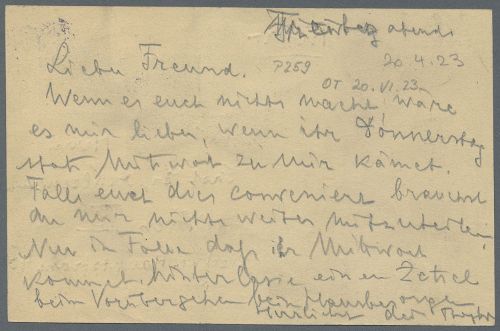 abends
20.4.23
Lieber Freund.
P259
OT 20.VI.23
Wenn es euch nichts macht wäre
es mir lieber, wenn ihr Donnerstag
statt Mittwoch zu mir kämet.
Falls euch dies conveniert brauchst
du mir nichts weiter mitzuteilen.
Nur im Falle daß ihr Mittwoch
kommet, hinterlasse einen Zettel
beim Vorübergehen beim Hausbesorger
Herzlichst der